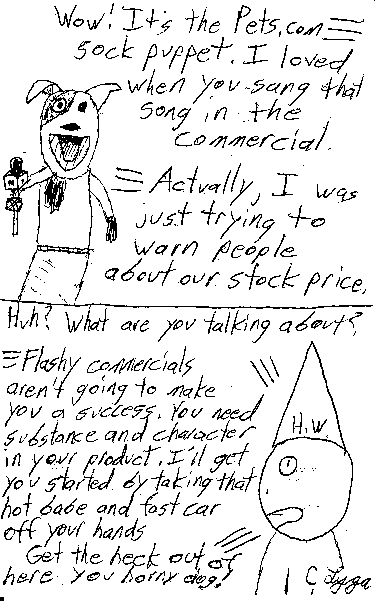 Wow! It's the Pets.com
sock puppet. I loved
when you sang that
song in the
commercial.
Actually, I was
just trying to
warn people
about our stock price.
Huh? What are you talking about?
Flashy commercials
aren't going to make
you a success. You need
substance and character
in your product. I'll get
you started by taking that
hot babe and fast car
off your hands
Get the heck out of
here you horny dog!
H.W.